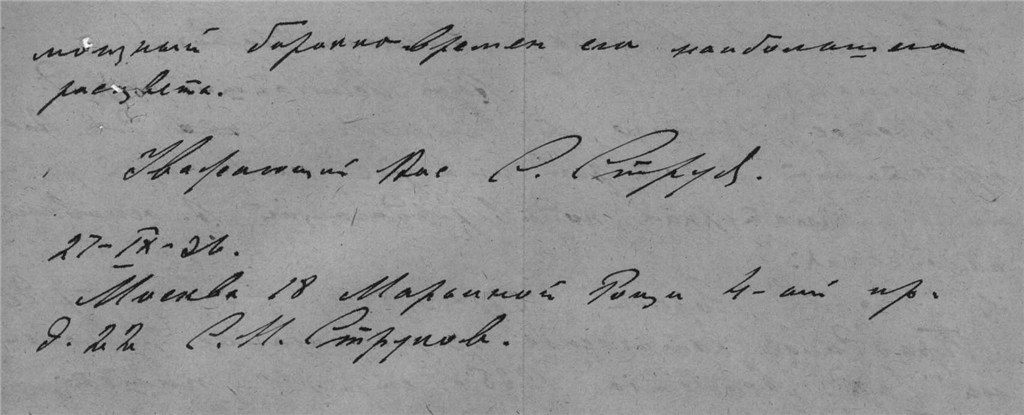 мощный барокко времен его наибольшего
расцвета.
Уважающий Вас С. Струков.
27-IX-36.
Москва 18 Марьиной Рощи 4-ый пр.
д. 22 С. Струков.